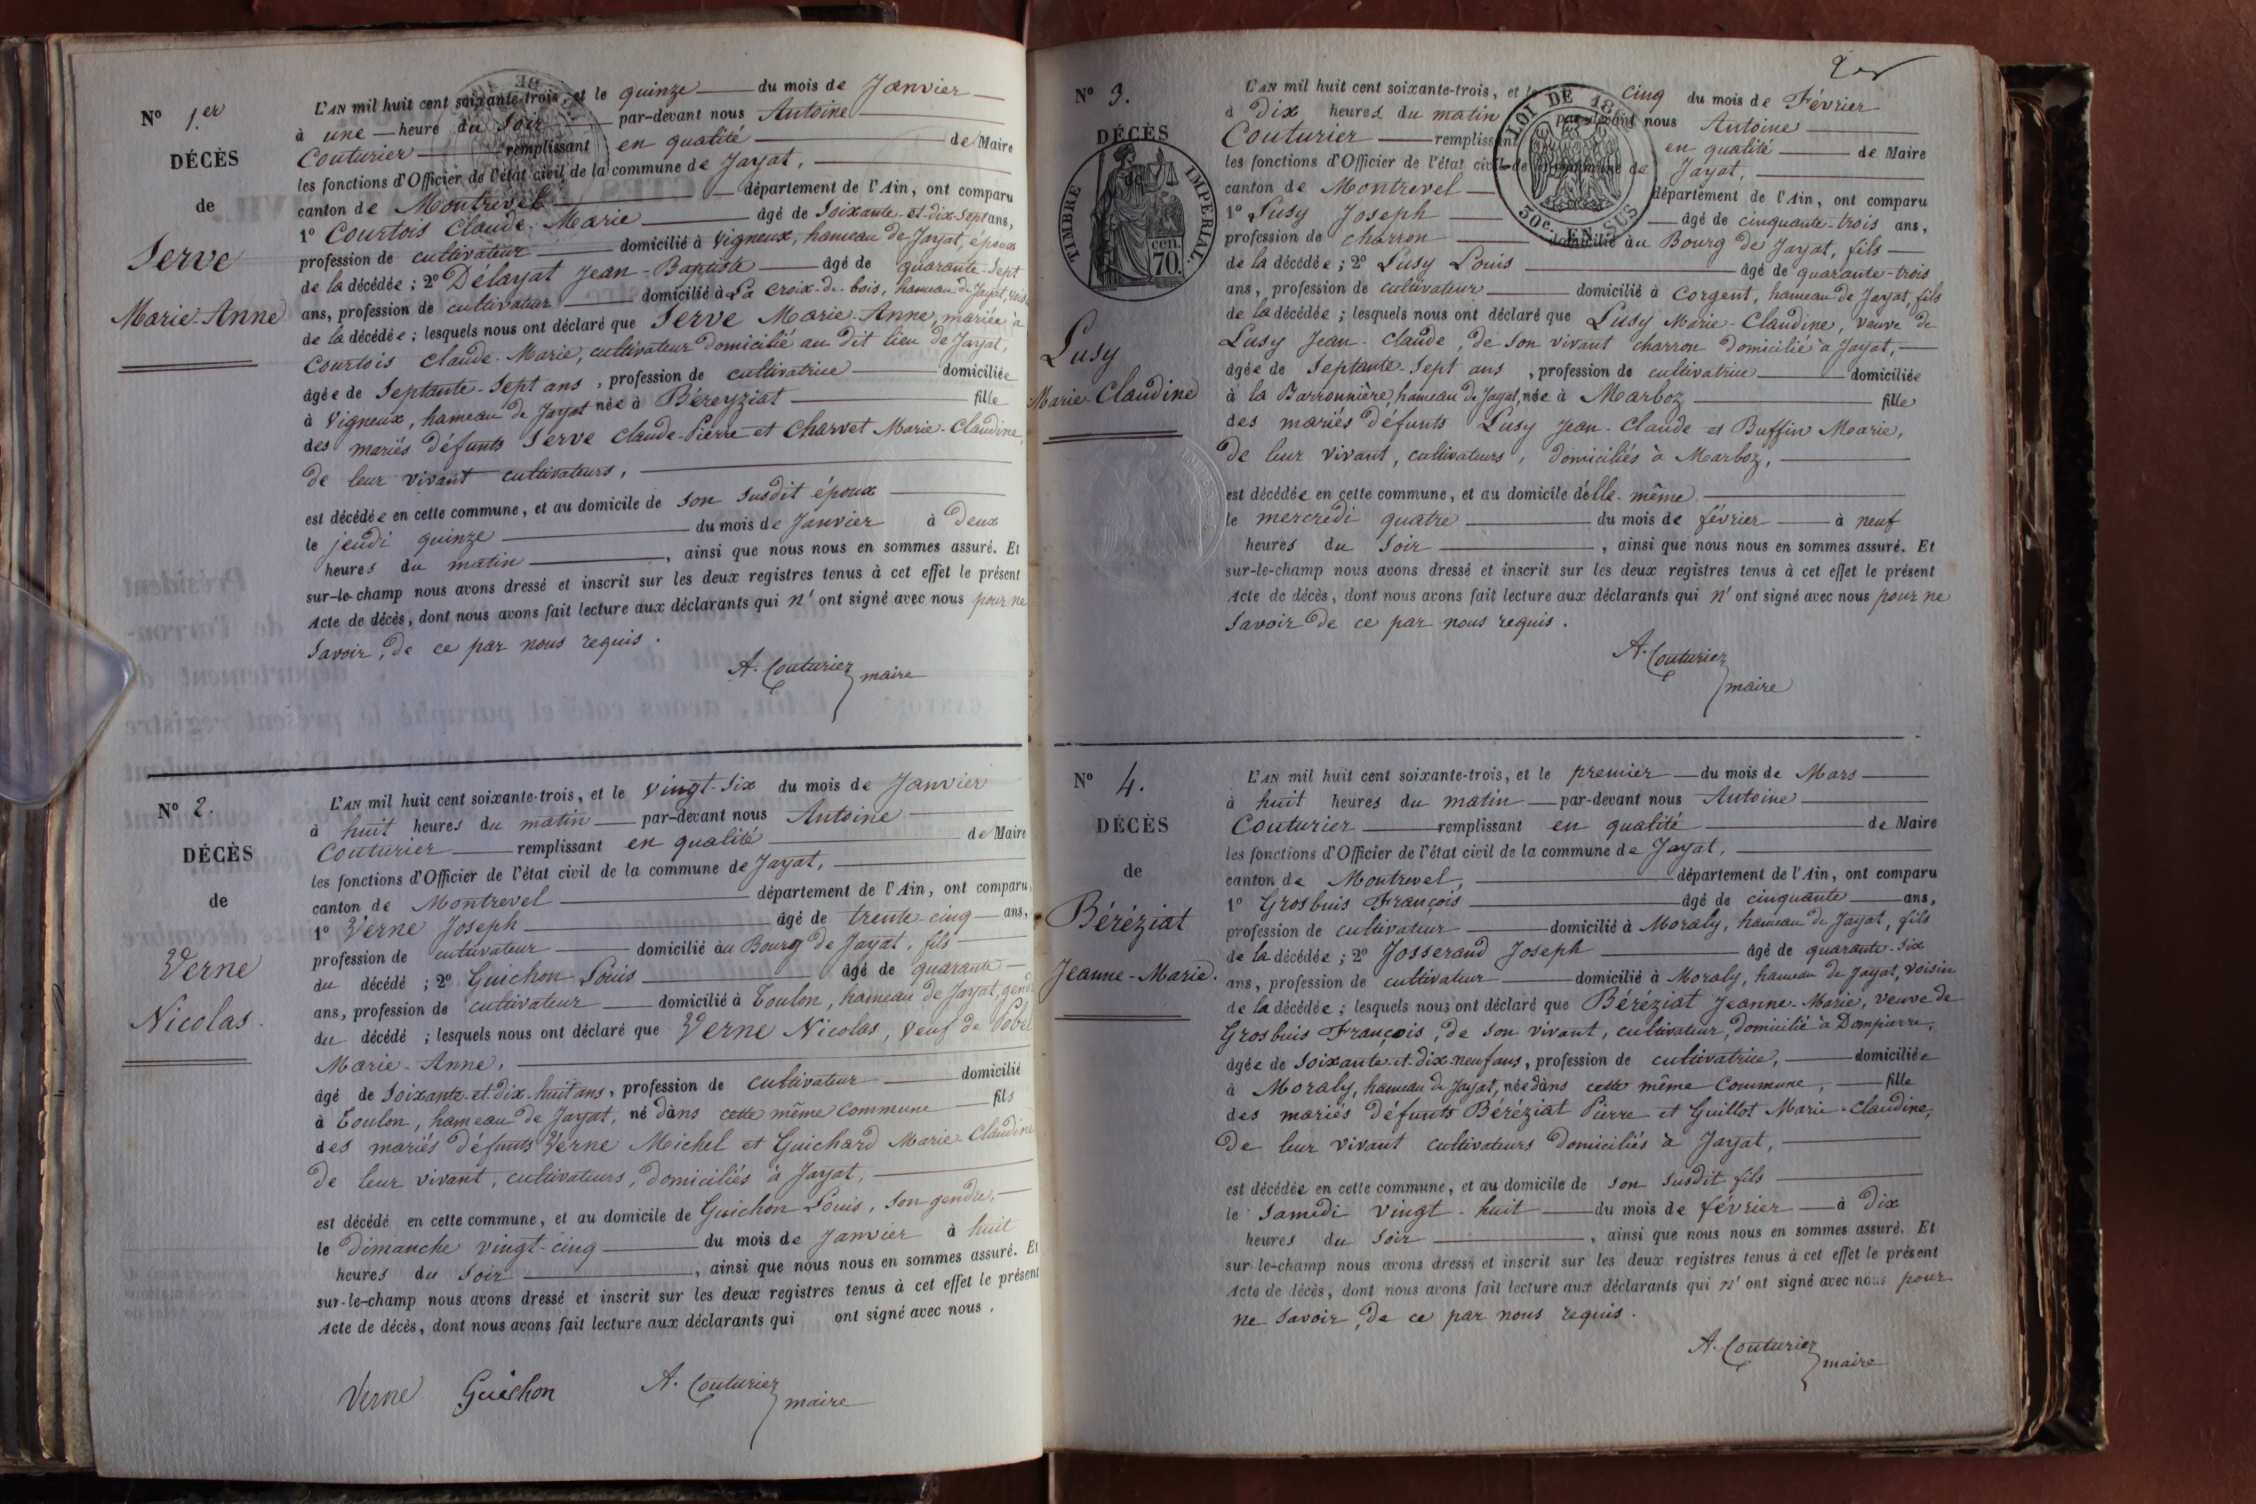 N° 1.er
DÉCÈS
de
Serve
Marie-Anne
L'AN mil huit cent soixante-trois, et le quinze du mois de Janvier
à une heure du soir par-devant nous Antoine
Couturier remplissant en qualité de Maire
les fonctions d'Officier de l'état civil de la commune de Jayat,
canton de Montrevel département de l'Ain, ont comparu
1° Courtois Claude-Marie âgé de soixante-et-dix-sept ans,
profession de cultivateur domicilié à Vigneux, hameau de Jayat, époux
de la décédée ; 2° Délayat Jean-Baptiste âgé de quarante-sept
ans, profession de cultivateur domicilié à La Croix-de-bois, hameau de Jayat, voisin
de la décédée ; lesquels nous ont déclaré que Serve Marie-Anne, mariée à
Courtois Claude-Marie, cultivateur domicilié au dit lieu de Jayat,
âgée de septante-sept ans, profession de cultivatrice domiciliée
à Vigneux, hameau de Jayat née à Béreyziat fille
des mariés défunts Serve Claude-Pierre et Charvet Marie-Claudine,
de leur vivant cultivateurs,
est décédée en cette commune, et au domicile de son susdit époux
le jeudi quinze du mois de Janvier à deux
heures du matin, ainsi que nous nous en sommes assuré. Et
sur-le-champ nous avons dressé et inscrit sur les deux registres tenus à cet effet le présent
Acte de décès, dont nous avons fait lecture aux déclarants qui n'ont signé avec nous pour ne
savoir, de ce par nous requis.
A. Couturier maire
N° 2.
DÉCÈS
de
Verne
Nicolas.
L'AN mil huit cent soixante-trois, et le vingt-six du mois de Janvier
à huit heures du matin par-devant nous Antoine
Couturier remplissant en qualité de Maire
les fonctions d'Officier de l'état civil de la commune de Jayat,
canton de Montrevel département de l'Ain, ont comparu
1° Verne Joseph âgé de trente cinq ans,
profession de cultivateur domicilié au Bourg de Jayat, fils
du décédé ; 2° Guichon Louis âgé de quarante
ans, profession de cultivateur domicilié à Toulon, hameau de Jayat,
du décédé ; lesquels nous ont déclaré que Verne Nicolas, veuf de
Marie-Anne,
âgé de soixante-et-dix-huit ans, profession de cultivateur domicilié
à Toulon, hameau de Jayat, né dans cette même commune fils
des mariés défunts Verne Michel et Guichard Marie-Claudine
de leur vivant, cultivateurs, domiciliés à Jayat,
est décédé en cette commune, et au domicile de Guichon Louis, son gendre,
le dimanche vingt-cinq du mois de Janvier à huit
heures du soir, ainsi que nous nous en sommes assuré. Et
sur-le-champ nous avons dressé et inscrit sur les deux registres tenus à cet effet le présent
Acte de décès, dont nous avons fait lecture aux déclarants qui ont signé avec nous.
Verne Guichon A. Couturier maire
N° 3.
DÉCÈS
de
TIMBRE IMPERIAL
cen. 70.
Lusy
Marie-Claudine
LOI DE 18
50c. EN SUS
L'AN mil huit cent soixante-trois, et le cinq du mois de Février
à dix heures du matin par-devant nous Antoine
Couturier remplissant en qualité de Maire
les fonctions d'Officier de l'état civil de la commune de Jayat,
canton de Montrevel département de l'Ain, ont comparu
1° Lusy Joseph âgé de cinquante-trois ans,
profession de charron domicilié au Bourg de Jayat, fils
de la décédée ; 2° Lusy Louis âgé de quarante-trois
ans, profession de cultivateur domicilié à Corgent, hameau de Jayat, fils
de la décédée ; lesquels nous ont déclaré que Lusy Marie-Claudine, veuve de
Lusy Jean-Claude, de son vivant charron domicilié à Jayat,
âgée de septante-sept ans, profession de cultivatrice domiciliée
à la Barronnière, hameau de Jayat, née à Marboz fille
des mariés défunts Lusy Jean-Claude et Buffin Marie,
de leur vivant, cultivateurs, domiciliés à Marboz,
est décédée en cette commune, et au domicile d'elle-même
le mercredi quatre du mois de février à neuf
heures du soir, ainsi que nous nous en sommes assuré. Et
sur-le-champ nous avons dressé et inscrit sur les deux registres tenus à cet effet le présent
Acte de décès, dont nous avons fait lecture aux déclarants qui n'ont signé avec nous pour ne
savoir de ce par nous requis.
A. Couturier
maire
N° 4.
DÉCÈS
de
Béréziat
Jeanne-Marie.
L'AN mil huit cent soixante-trois, et le premier du mois de Mars
à huit heures du matin par-devant nous Antoine
Couturier remplissant en qualité de Maire
les fonctions d'Officier de l'état civil de la commune de Jayat,
canton de Montrevel, département de l'Ain, ont comparu
1° Grosbuis François âgé de cinquante ans,
profession de cultivateur domicilié à Moraly, hameau de Jayat, fils
de la décédée ; 2° Josserand Joseph âgé de quarante-six
ans, profession de cultivateur domicilié à Moraly, hameau de Jayat, voisin
de la décédée ; lesquels nous ont déclaré que Béréziat Jeanne-Marie, veuve de
Grosbuis François, de son vivant, cultivateur, domicilié à Dompierre,
âgée de soixante-et-dix-neuf ans, profession de cultivatrice, domiciliée
à Moraly, hameau de Jayat, née dans cette même commune, fille
des mariés défunts Béréziat Pierre et Guillot Marie-Claudine,
de leur vivant cultivateurs domiciliés à Jayat,
est décédée en cette commune, et au domicile de son susdit fils
le samedi vingt-huit du mois de février à dix
heures du soir, ainsi que nous nous en sommes assuré. Et
sur-le-champ nous avons dressé et inscrit sur les deux registres tenus à cet effet le présent
Acte de décès, dont nous avons fait lecture aux déclarants qui n'ont signé avec nous pour
ne savoir, de ce par nous requis.
A. Couturier
maire